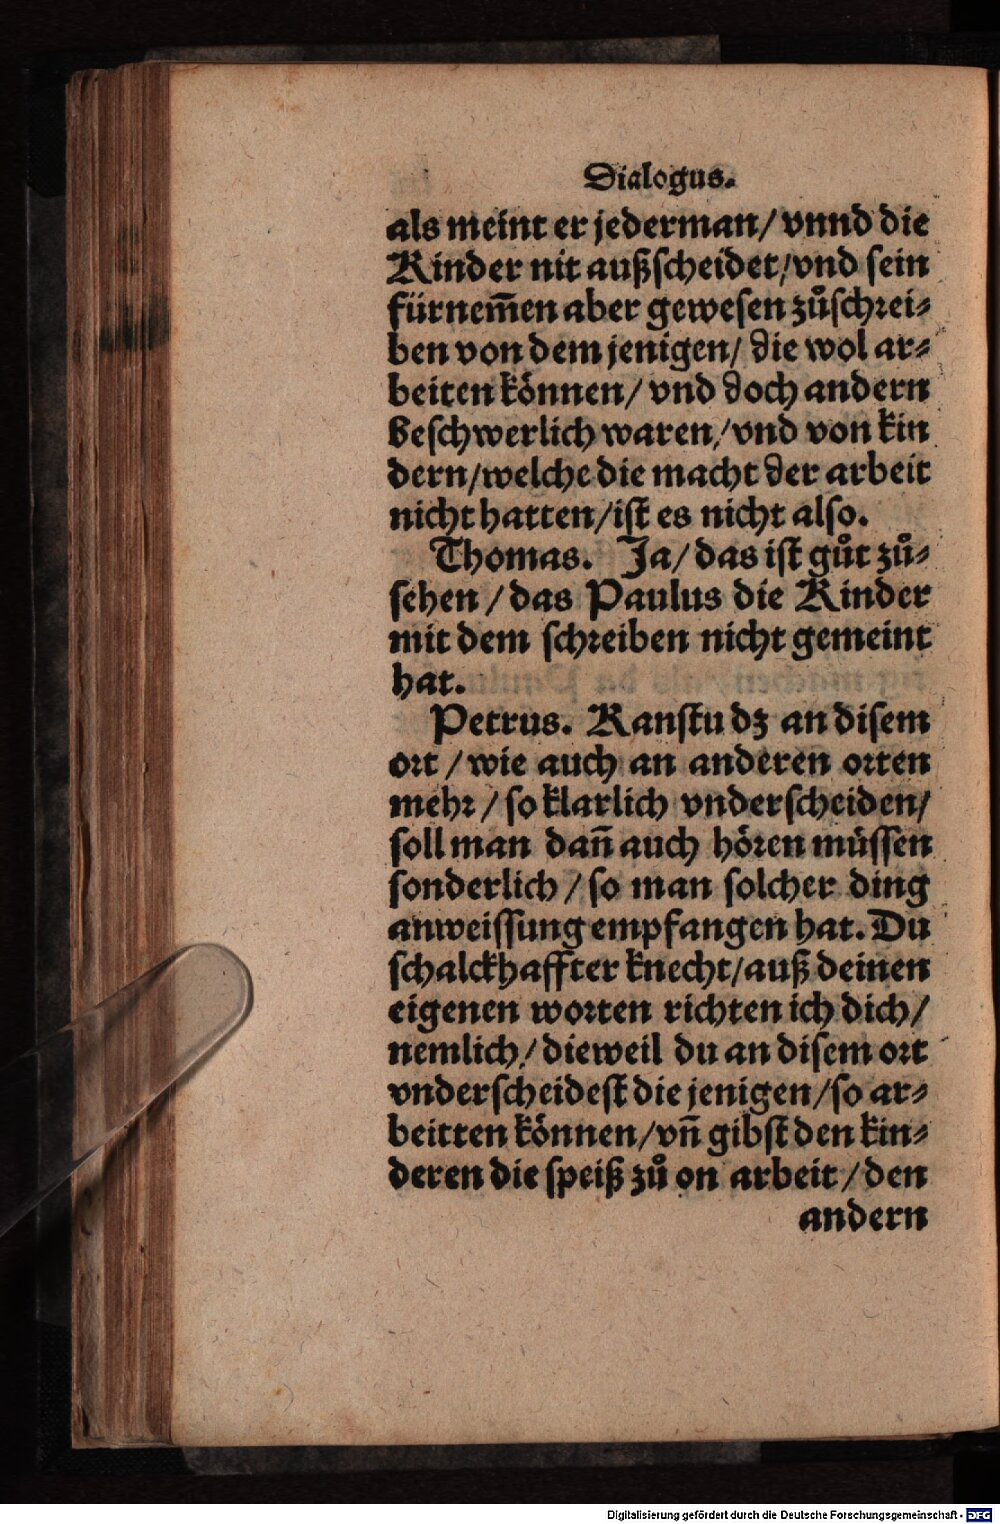 Dialogus.
als meint er jederman/ vnnd die
Kinder nit außscheidet/vnd sein
fürnem̃en aber gewesen zůschrei⸗
ben von dem jenigen/ die wol ar⸗
beiten können/ vnd doch andern
beschwerlich waren/vnd von kin
dern/welche die macht der arbeit
nicht hatten/ist es nicht also.
Thomas. Ja/ das ist gůt zů⸗
sehen / das Paulus die Kinder
mit dem schreiben nicht gemeint
hat.
Petrus. Kanstu dz an disem
ort / wie auch an anderen orten
mehr / so klarlich vnderscheiden/
soll man dañ auch hören müssen
sonderlich / so man solcher ding
anweissung empfangen hat. Du
schalckhaffter knecht/auß deinen
eigenen worten richten ich dich/
nemlich/ dieweil du an disem ort
vnderscheidest die jenigen/so ar⸗
beitten können/vñ gibst den kin⸗
deren die speiß zů on arbeit / den
andern
Digitalisierung gefördert durch die Deutsche Forschungsgemeinschaft - DFG